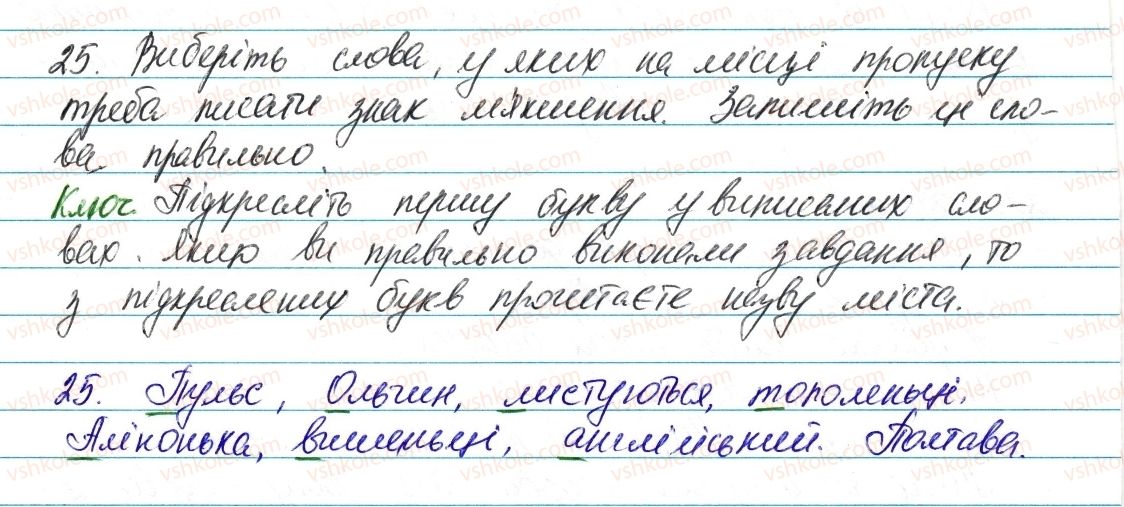 25. Виберіть слова, у яких на місці пропуску
треба писати знак м'якшення. Запишіть ці сло-
ва правильно.
Ключ. Підкресліть першу букву у виписаних сло-
вах. Якщо ви правильно виконали завдання, то
з підкреслених букв прочитаєте назву міста.
25. Пульс, Ольчин, листуються, тополеньці,
Алінонька, вишеньці, англійський. Полтава.